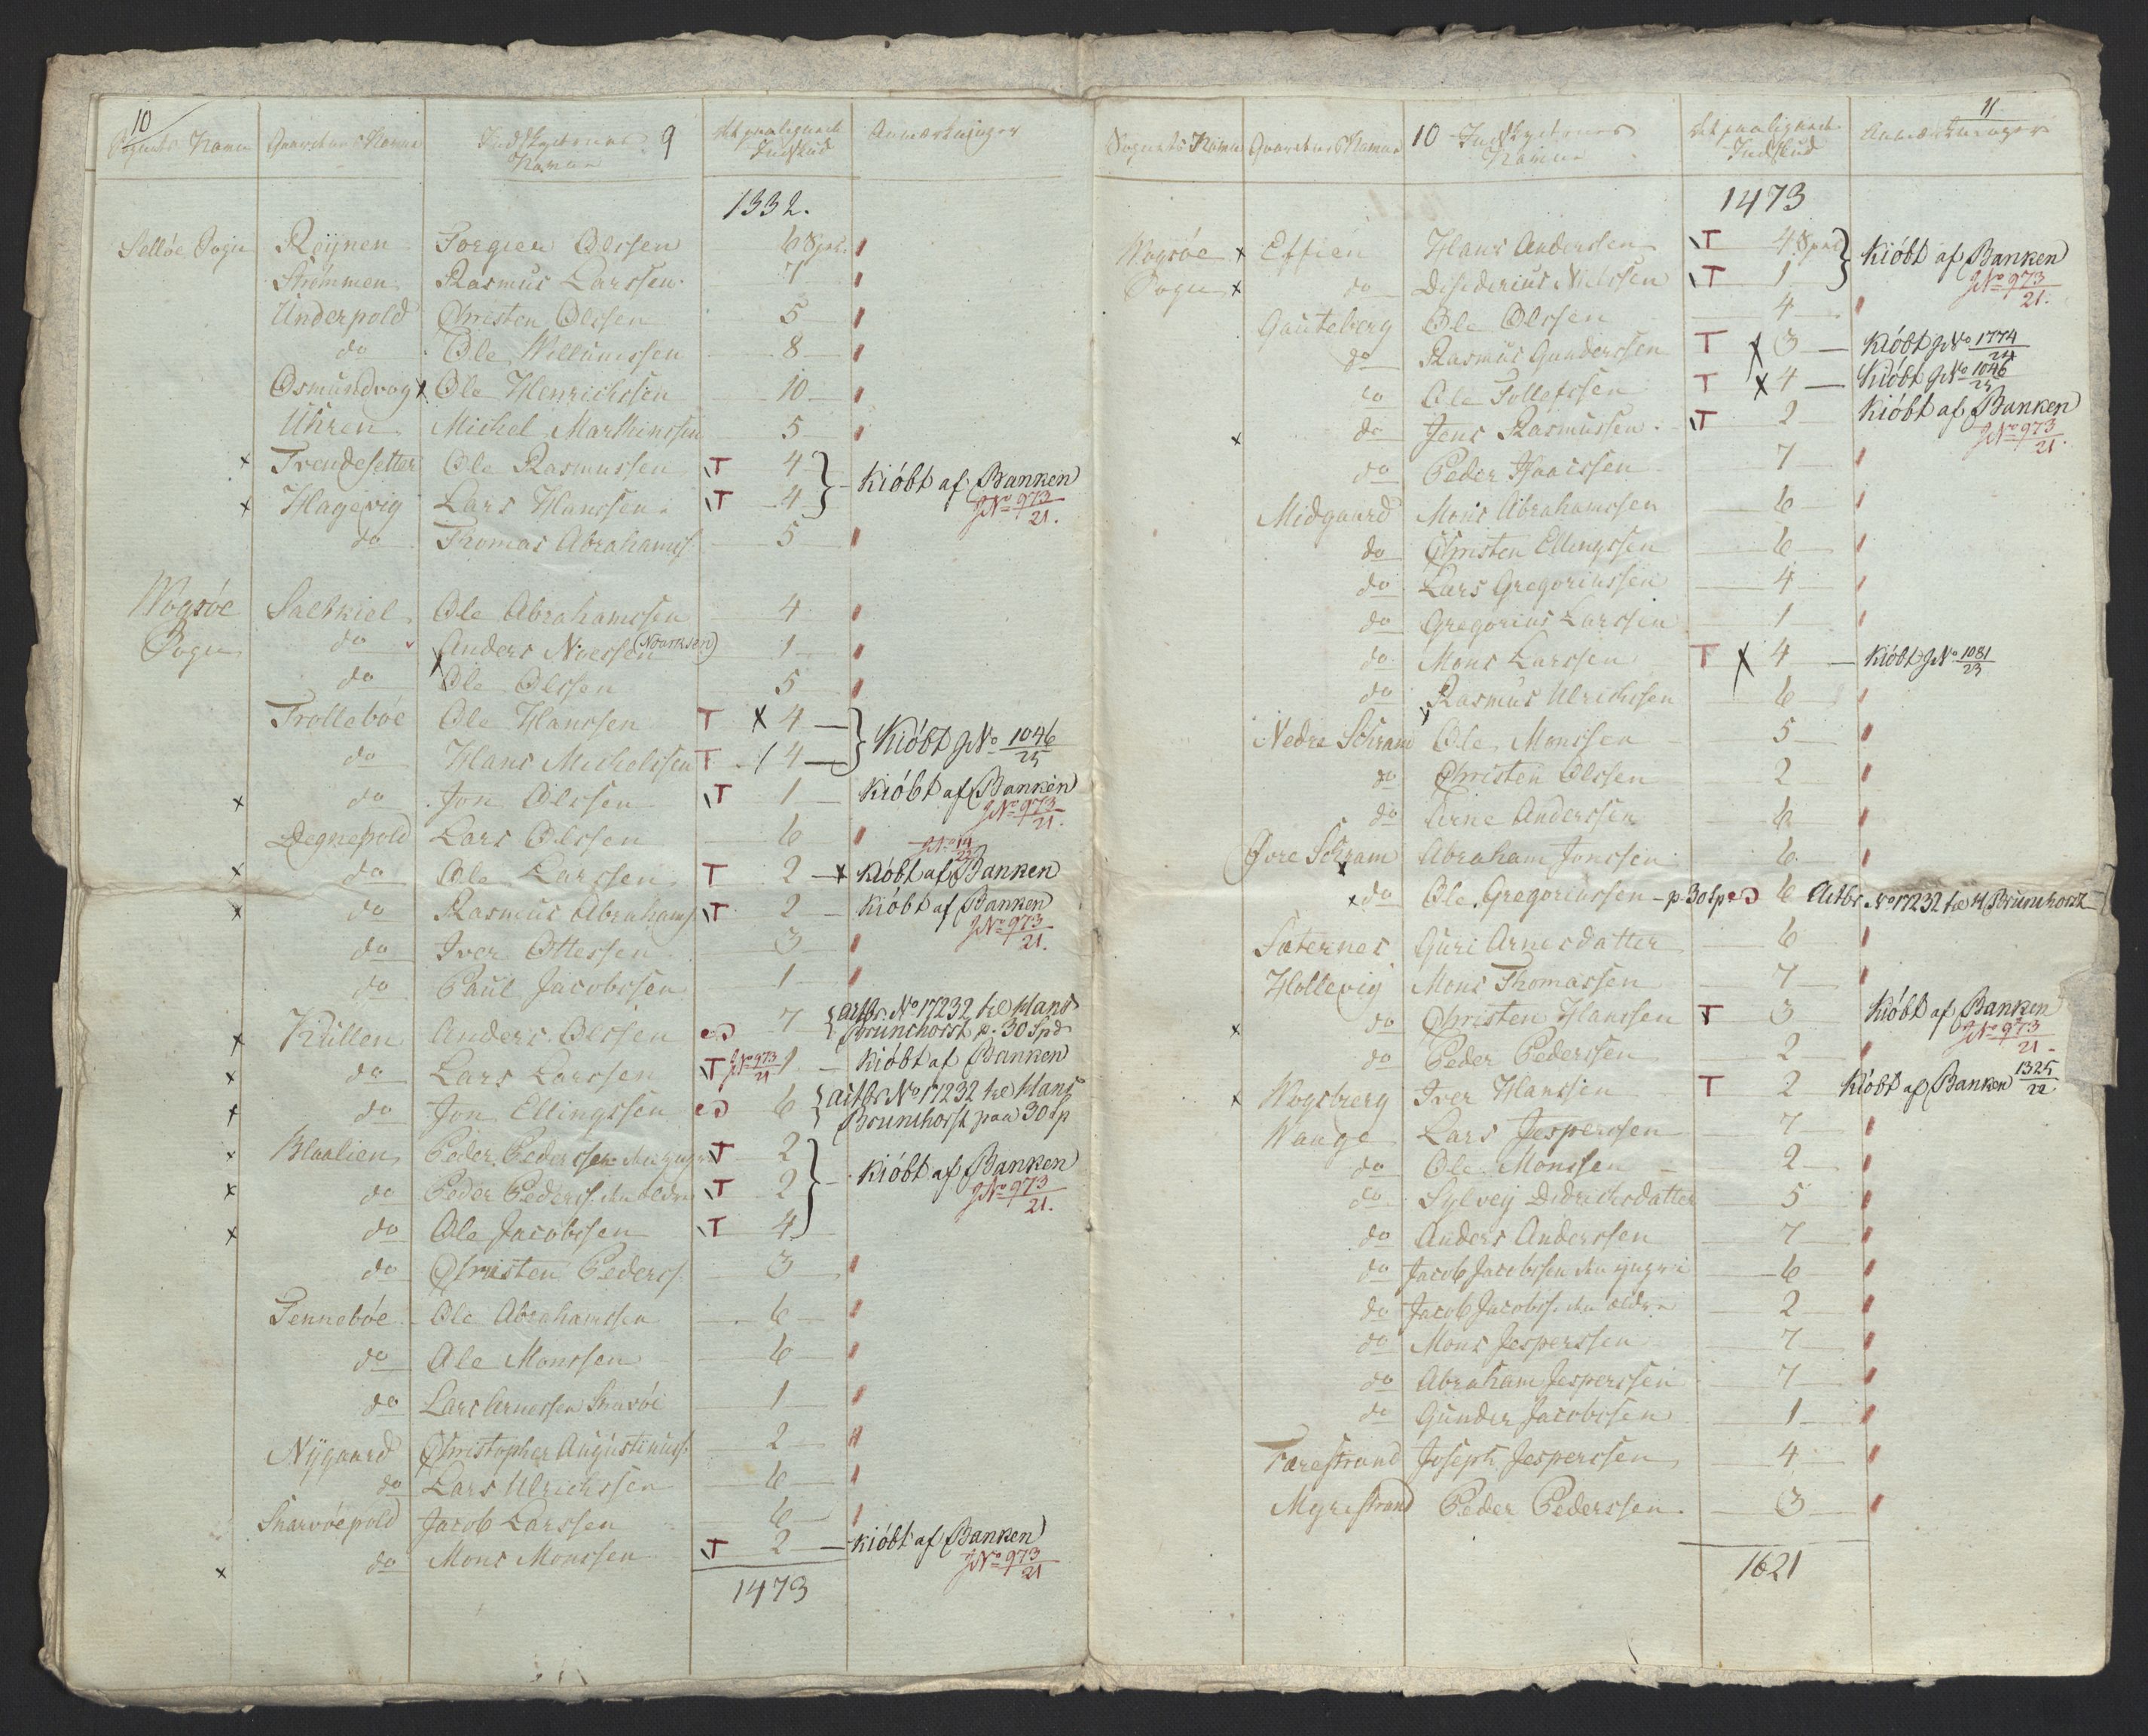 10
Sognets Navn Gaardenes Navne Indskydernes Navne 9 det paalignede Indskud Anmærkninger
1332.
Selløe Sogn Røÿnen Torgier Olssen 6 Spd.
Strømmen Rasmus Larssen 7
Underpold Christen Olssen 5
do Ole Willumssen 8
Osmundvog x Ole Henrichssen 10
Uhren Michel Marthinssen 5
x Trendesetter Ole Rasmussen T 4 } Kiöbt af Banken
x Hagevig Lars Hanssen T 4 JNo 973/21.
do Thomas Abrahams. 5
Wogsöe Saltkiel Ole Abrahamssen 4
Sogn do Anders Noessen (Noarksen) 1
do Ole Olssen 5
Trolleböe Ole Hanssen T x 4 } Kiöbt JNo 1046/25
do Hans Michelssen T 4
x do Jon Olssen T 1 Kiöbt af Banken
JNo 973/21.
Degnepold Lars Olssen 6
x do Ole Larssen T 2 x Kiöbt af Banken
x do Rasmus Abrahams. T 2 Kiöbt af Banken
JNo 973/21.
do Iver Ottessen 3
do Paul Jacobssen 1
x Küllen Anders Olssen 7 { No 17232 til Hans
Brunchorst p. 30 Spd
x do Lars Larssen T JNo 973/21 1 Kiöbt af Banken
x do Jon Ellingssen 6 { No 17232 til Hans
Brunchorst paa 30 Sp
x Blaalien Peder Pederssen den yngre T 2
x do Peder Pederss. den ældre T 2 } Kiöbt af Banken
JNo 973/21.
x do Ole Jacobssen T 4
do Christen Pederss. 3
Tenneböe Ole Abrahamssen 6
do Ole Monssen 6
do Lars Arnessen 1
Nÿgaard Christopher Augustinuss. 2
do Lars Ulrichssen 6
Skarvöepold Jacob Larssen 6
x do Mons Monssen T 2 Kiöbt af Banken
JNo 973/21
1473
11
Sognets Navn Gaardenes Navne 10 Indskydernes Navne det paalignede Indskud Anmærkninger
1473
Wogsøe x Effien Hans Anderssen T 4 Spd } Kiöbt af Banken
Sogn x do Desiderius Nielssen T 1 JNo 973/21.
Gauteberg Ole Olssen 4
do Rasmus Gunderssen T x 3 Kiöbt JNo 1774/24
do Ole Tollefssen T x 4 Kiöbt JNo 1046/25
x do Jens Rasmussen T 2 Kiöbt af Banken
JNo 973/21.
do Peder Isaacssen 7
Midgaard Mons Abrahamssen 6
do Christen Ellingssen 6
do Lars Gregoriussen 4
do Gregorius Larssen 1
do Mons Larssen T x 4 Kiöbt JNo 1081/23
do Rasmus Ulrichssen 6
Nedre Schram Ole Monssen 5
do Christen Olssen 2
do Arne Anderssen 6
Øvre Schram Abraham Jonssen 6
x do Ole Gregoriussen p. 30 Sp 6 No 17232 til H Brunchorst
Sæternes Guri Arnesdatter 6
Hollevig Mons Thomassen 7
x do Christen Hanssen T 3 Kiöbt af Banken
JNo 973/21
do Peder Pederssen 2
x Wogsberg Iver Hanssen T 2 Kiöbt af Banken 1325/22
Waage Lars Jesperssen 7
do Ole Monssen 2
do Sylvej Didrichsdatter 5
do Anders Anderssen 7
do Jacob Jacobssen den yngre 6
do Jacob Jacobss. den ældre 2
do Mons Jesperssen 7
do Abraham Jesperssen 7
do Gunder Jacobssen 1
Tarestrand Joseph Jesperssen 4
Myrestrand Peder Pederssen 3
1621